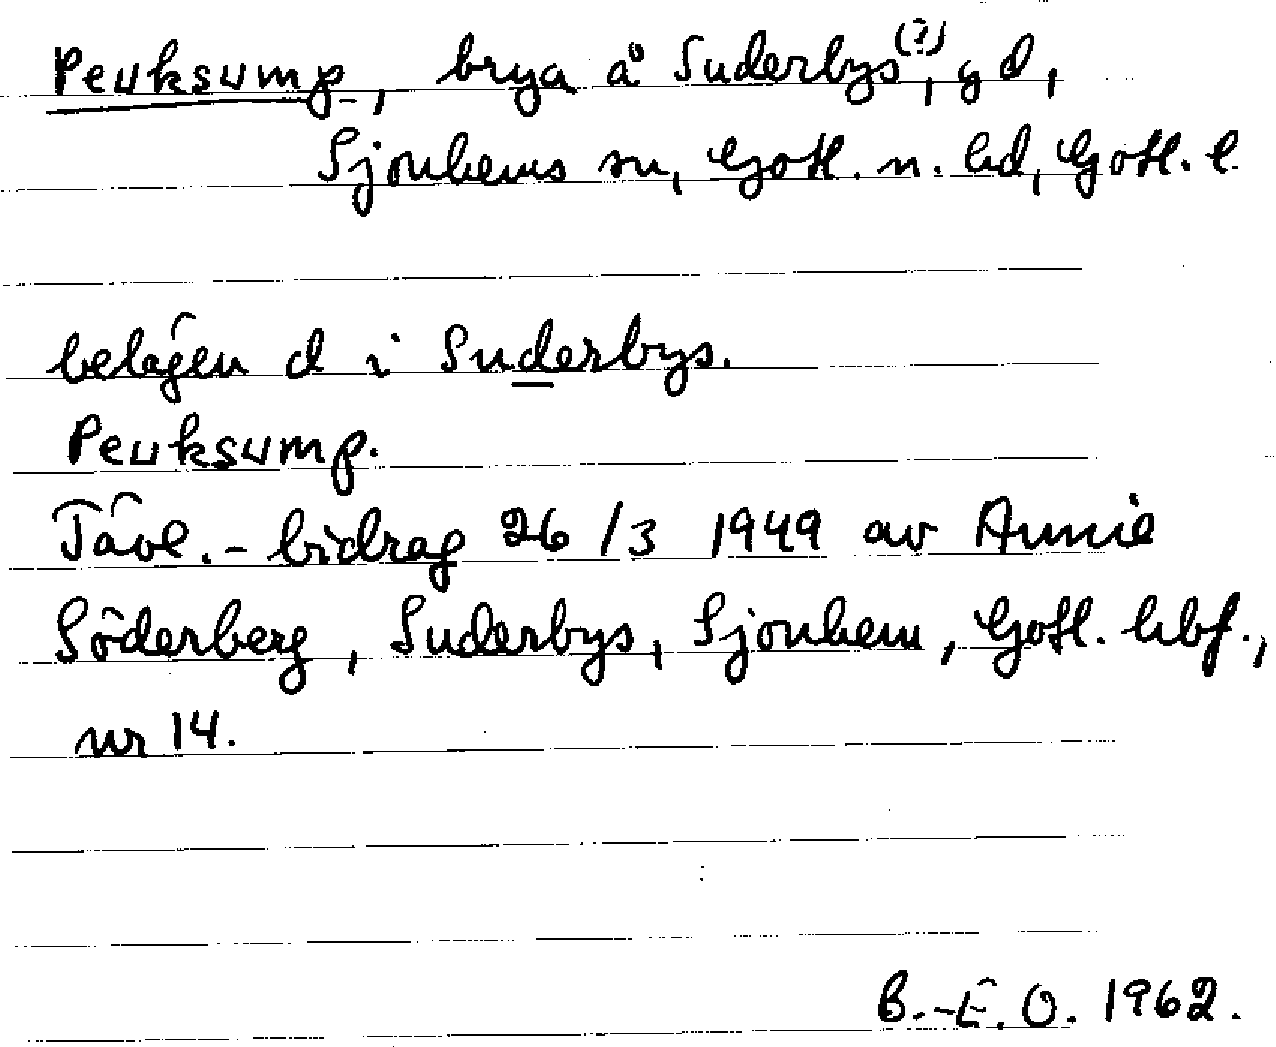 Peuksump, brya å Suderbys(?), gd,
Sjonhems sn, Gotl. n. hd, Gotl. l.
belägen d i Suderbys.
Peuksump.
Tävl.- bidrag 26/3 1949 av Annie
Söderberg, Suderbys, Sjonhem, Gotl. hbf.,
nr 14.
B.-E. O. 1962.